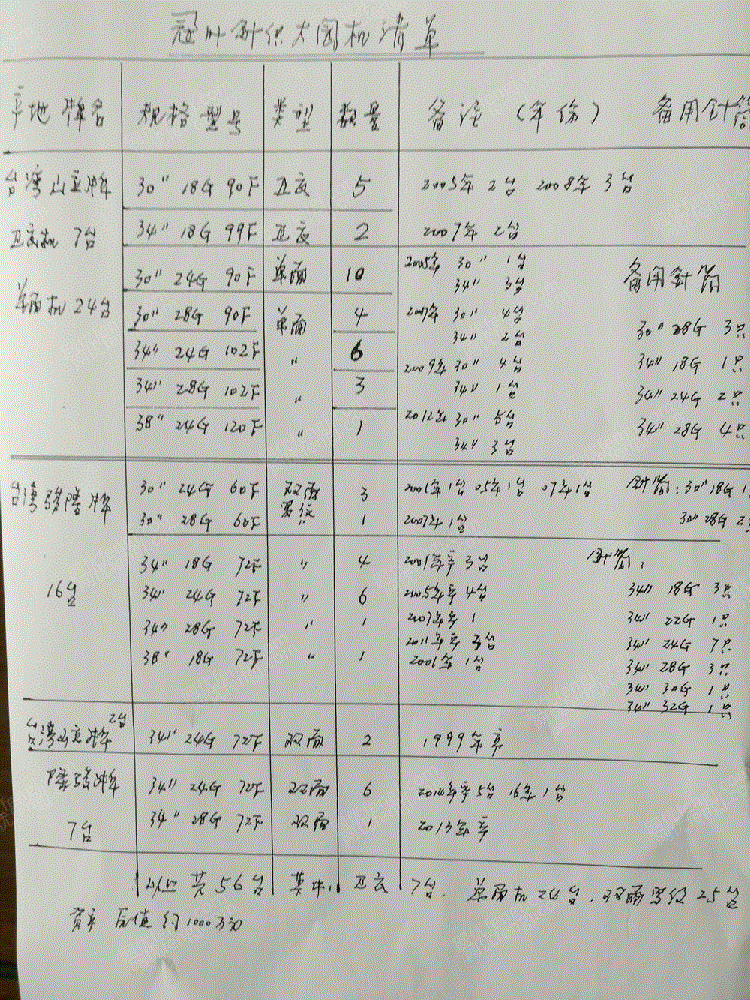 冠叶针织大园机清单
产地牌名 规格型号 类型 数量 备注(年份) 备用针筒
台湾山立牌 30" 18G 90F 卫衣 5 2005年2台 2008年3台
卫衣机7台 34" 18G 99F 卫衣 2 2007年2台
单面机24台 30" 24G 90F 单面 10 2005年 30" 1台 备用针筒
34" 3台
30" 28G 90F 单面 4 2007年 30" 4台 30" 28G 3只
34" 2台
34" 24G 102F " 6 2009年 30" 4台 34" 18G 1只
34" 28G 102F " 3 34" 1台 34" 24G 2只
38" 24G 120F " 1 30" 5台 34" 28G 4只
34" 3台
台湾 牌 30" 24G 60F 双面 3 1台 05年1台 07年1台 针筒:30" 18G
30" 28G 60F 罗纹 1 1台 30" 28G
16台 34" 18G 72F " 4 3台 针筒:
34" 24G 72F " 6 2005年 4台 34" 18G 3只
34" 28G 72F " 1 34" 22G 1只
38" 18G 72F " 1 1台 34" 24G 7只
34" 28G 3只
34" 30G 1只
34" 32G 1只
台湾山立牌2台 34" 24G 72F 双面 2 1999年
牌 34" 24G 72F 双面 6 5台 16年1台
7台 34" 28G 72F 双面 1 2013年
以上共56台 其中: 卫衣7台. 单面机24台. 双面罗纹25台
资产原值约1000万